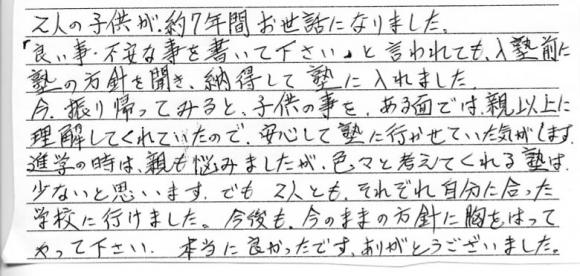 2人の子供が、約7年間お世話になりました。
「良い事・不安な事を書いて下さい」と言われても、入塾前に
塾の方針を聞き、納得して塾に入れました。
今、振り帰ってみると、子供の事を、ある面では、親以上に
理解してくれていたので、安心して塾に行かせていた気がします。
進学の時は、親も悩みましたが、色々と考えてくれる塾は、
少ないと思います。でも 2人とも、それぞれ自分に合った
学校に行けました。今後も、今のままの方針に胸をはって
やって下さい。 本当に良かったです、ありがとうございました。